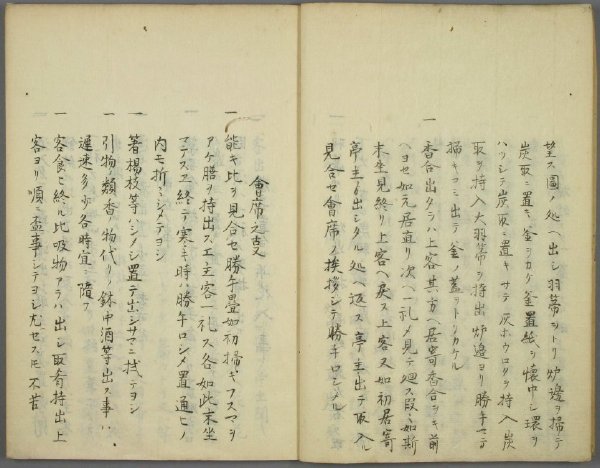 望ス圖ノ処ヘ出シ羽箒ヲトリ炉邉ヲ掃テ
炭取ニ置キ釜ヲカケ釜置紙ヲ懐中シ環ヲ
ハヅシテ炭取ニ置キサテ灰ホウロクヲ持入炭
取ヲ持入大羽箒ヲ持出炉邉ヨリ勝手マテ
掃キコミ出テ釜ノ蓋ヲトリカケル
一 香合出タラハ上客其方ヘ居寄香合ヲキ前
ヘヨセ如元居直リ次ヘ一礼シ見テ廻ス段々如斯
末坐見終リ上客ヘ戻ス上客又如初居寄
亭主ヨ出シタル処ヘ返ス亭主出テ取入ル
見合セ會席ノ挨拶シテ勝手ロシメル
會席之叓
一 能キ比ヲ見合セ勝手畳如初掃ギフスマヲ
アケ膳ヲ持出スヱ主客一礼ス各如此末坐
マテスヱ終テ寒キ時ハ勝手ロシメ置通ヒノ
内モ折々シメテヨシ
一 箸楊枝等ハシメシ置テ出シサマニ拭テヨシ
一 引物ノ類香ノ物代リノ鉢中酒等出ス事ハ
遅速多少各時宜ニ隨フ
一 客食ニ終ル比吸物アラハ出シ取肴持出上
客ヨリ順ニ盃事シテヨシ尤セストモ不苦